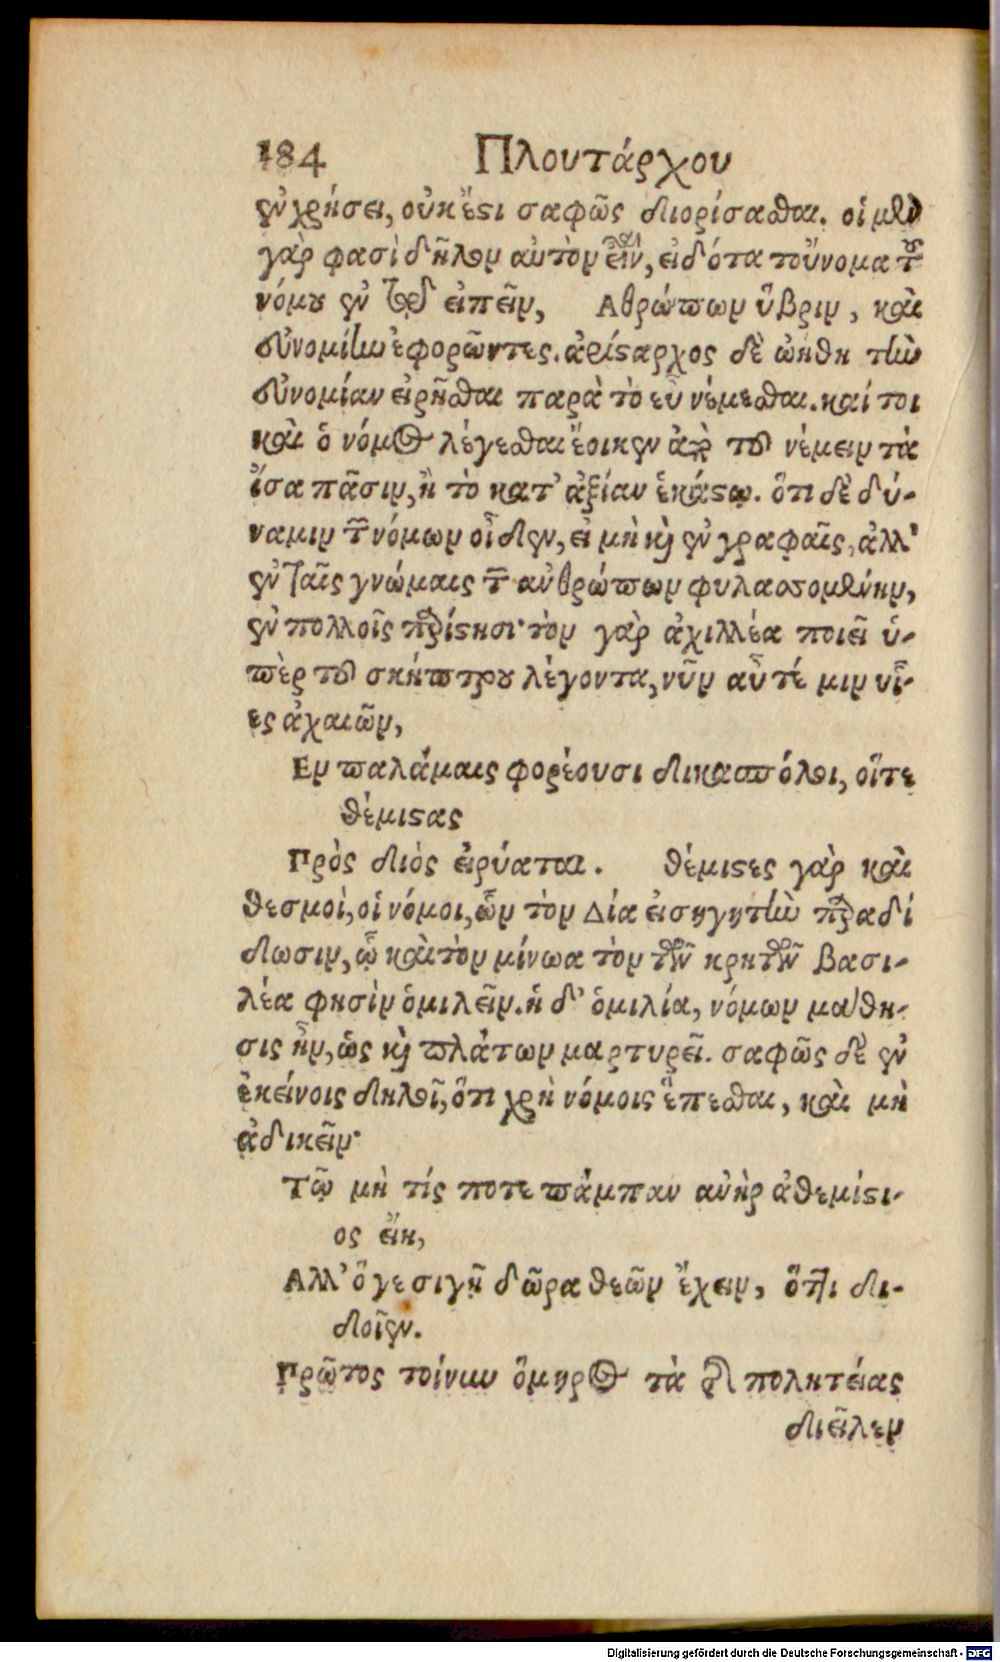 184 Πλουτάρχου
ἐν χρήσει, οὐκ ἔστι σαφῶς διορίσασθαι. οἱ μὲν
γὰρ φασὶ δῆλον αὐτὸν εἶναι, εἰδότα τοὔνομα τοῦ
νόμου ἐν τῷ εἰπεῖν, Ανθρώπων ὕβριν, καὶ
εὐνομίην ἐφορῶντες. ἀρίσταρχος δὲ ὠήθη τὴν
εὐνομίαν εἰρῆσθαι παρὰ τὸ εὖ νέμεσθαι. καί τοι
καὶ ὁ νόμος λέγεσθαι ἔοικεν ἀπὸ τοῦ νέμειν τὰ
ἴσα πᾶσιν, ἢ τὸ κατ' ἀξίαν ἑκάστῳ. ὅτι δὲ δύ-
ναμιν τῶν νόμων οἶδεν, εἰ μὴ καὶ ἐν γραφαῖς, ἀλλ'
ἐν ταῖς γνώμαις τῶν ἀνθρώπων φυλασσομένην,
ἐν πολλοῖς παρίστησι· τὸν γὰρ ἀχιλλέα ποιεῖ ὑ-
πὲρ τοῦ σκήπτρου λέγοντα, νῦν αὖτέ μιν υἷ-
ες ἀχαιῶν,
Εν παλάμαις φορέουσι δικασπόλοι, οἵτε
θέμιστας
Πρὸς διὸς εἰρύαται. θέμιστες γὰρ καὶ
θεσμοὶ, οἱ νόμοι, ὧν τὸν Δία εἰσηγητὴν παραδί
δωσιν, ᾧ καὶ τὸν μίνωα τὸν τῶν κρητῶν βασι-
λέα φησὶν ὁμιλεῖν. ἡ δ' ὁμιλία, νόμων μάθη-
σις ἦν, ὡς καὶ πλάτων μαρτυρεῖ. σαφῶς δὲ ἐν
ἐκείνοις δηλοῖ, ὅτι χρὴ νόμοις ἕπεσθαι, καὶ μὴ
ἀδικεῖν·
Τῷ μὴ τίς ποτε πάμπαν ἀνὴρ ἀθεμίστι-
ος εἴη,
Αλλ' ὅγε σιγῇ δῶρα θεῶν ἔχειν, ὅττι δι-
δοῖεν.
Πρῶτος τοίνυν ὅμηρος τὰ τῆς πολητείας
διεῖλεν
Digitalisierung gefördert durch die Deutsche Forschungsgemeinschaft - DFG